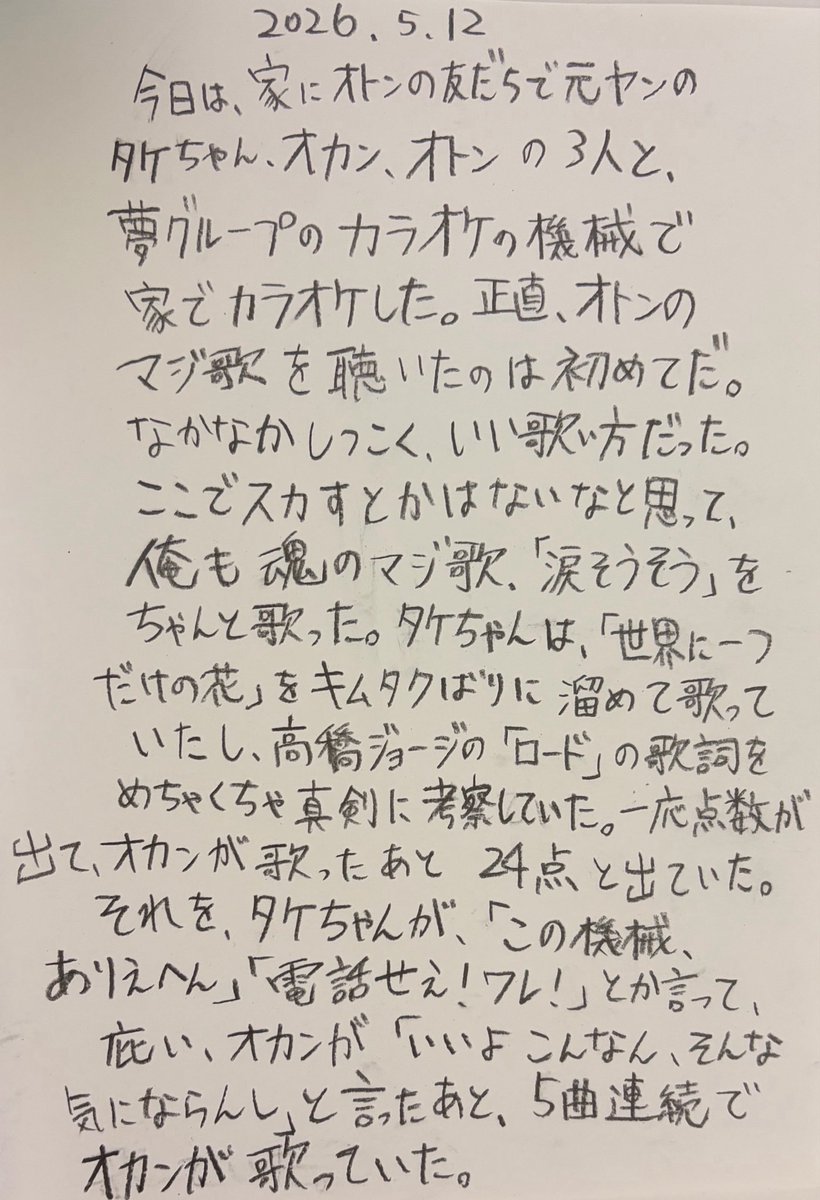 2026.5.12
今日は、家にオトンの友だちで元ヤンの
タケちゃん、オカン、オトンの3人と、
夢グループのカラオケの機械で
家でカラオケした。正直、オトンの
マジ歌を聴いたのは初めてだ。
なかなかしつこく、いい歌い方だった。
ここでスカすとかはないなと思って、
俺も魂のマジ歌、「涙そうそう」を
ちゃんと歌った。タケちゃんは、「世界に一つ
だけの花」をキムタクばりに溜めて歌って
いたし、高橋ジョージの「ロード」の歌詞を
めちゃくちゃ真剣に考察していた。一応点数が
出て、オカンが歌ったあと24点と出ていた。
それを、タケちゃんが、「この機械、
ありえへん」「電話せえ!ワレ!」とか言って、
庇い、オカンが「いいよこんなん、そんな
気にならんし」と言ったあと、5曲連続で
オカンが歌っていた。